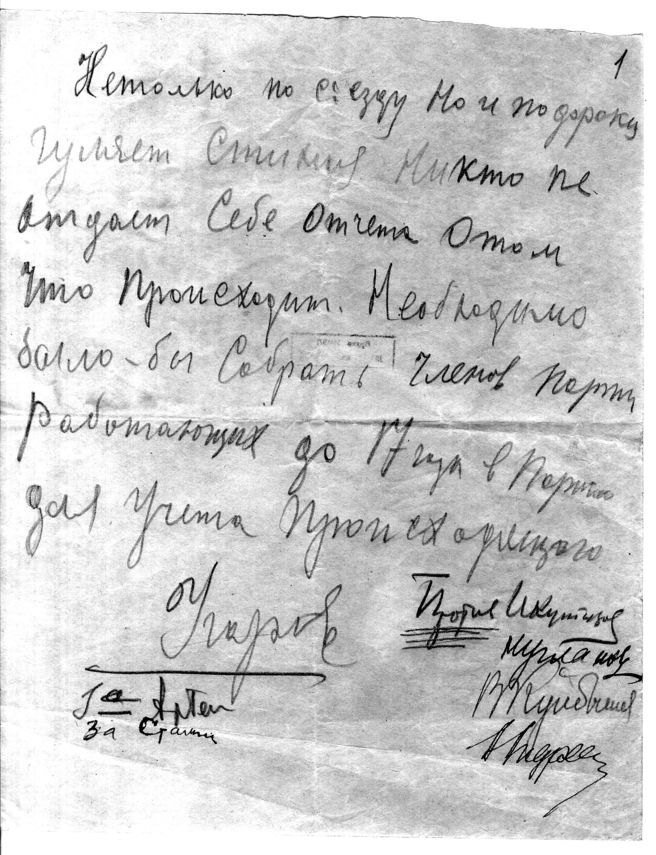 1
Нетолько по сіезду но и по дороки
гуляет Стихия Никто не
отдает Себе отчета Отом
Что Происходит. Необходимо
было-бы Собрать Членов Парти
Работающих до 17 года в Партии
для Учета Происходящего
Угаров
За Артем
За Сталин
Против
В Куйбышев
А Андреев